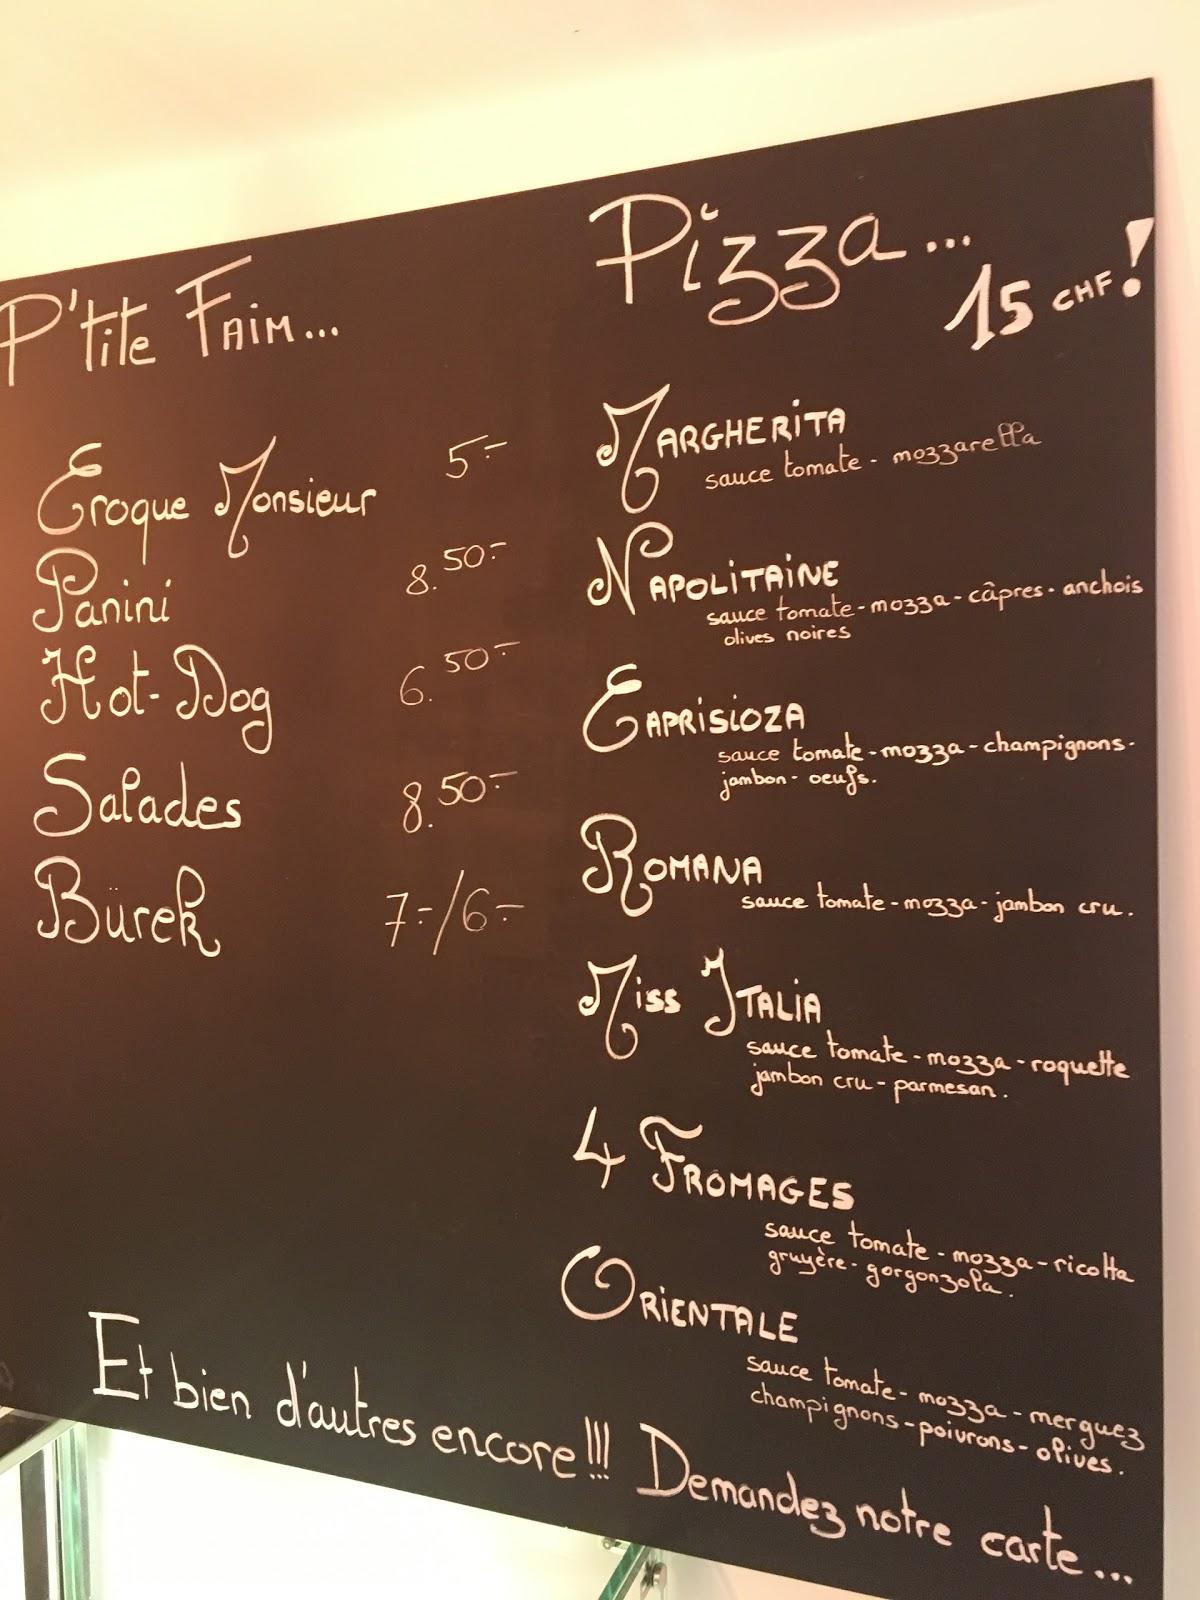 P'tite Faim...
Croque Monsieur 5.-
Panini 8.50.-
Hot-Dog 6.50.-
Salades 8.50.-
Bürek 7.-/6.-
Pizza...
15 CHF!
MARGHERITA
sauce tomate - mozzarella
NAPOLITAINE
sauce tomate - mozza - câpres - anchois
olives noires
CAPRISIOZA
sauce tomate - mozza - champignons -
jambon - oeufs.
ROMANA
sauce tomate - mozza - jambon cru.
Miss ITALIA
sauce tomate - mozza - roquette
jambon cru - parmesan.
4 FROMAGES
sauce tomate - mozza - ricotta
gruyère - gorgonzola.
ORIENTALE
sauce tomate - mozza - merguez
champignons - poivrons - olives.
Et bien d'autres encore!!! Demandez notre carte...